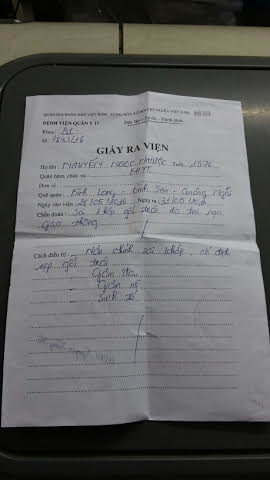 QUÂN ĐỘI NHÂN DÂN VIỆT NAM CỘNG HÒA XÃ HỘI CHỦ NGHĨA VIỆT NAM
BỆNH VIỆN QUÂN Y 13 Độc lập - Tự do - Hạnh phúc
Khoa:
Số:
GIẤY RA VIỆN
Họ tên: NGUYỄN NGỌC Tuổi: 1976
Quân hàm, chức vụ: BHYT
Đơn vị:
Quê quán: Bình Long - Bình Sơn - Quảng Ngãi
Ngày vào viện: 28/05/2016 Ngày ra: 31/05/2016
Chẩn đoán: Sai khớp gối trái do tai nạn
giao thông
Cách điều trị: - Nắn chỉnh sai khớp, cố định
nẹp gối trái
- Giảm đau
- Giảm nề
- Sinh tố